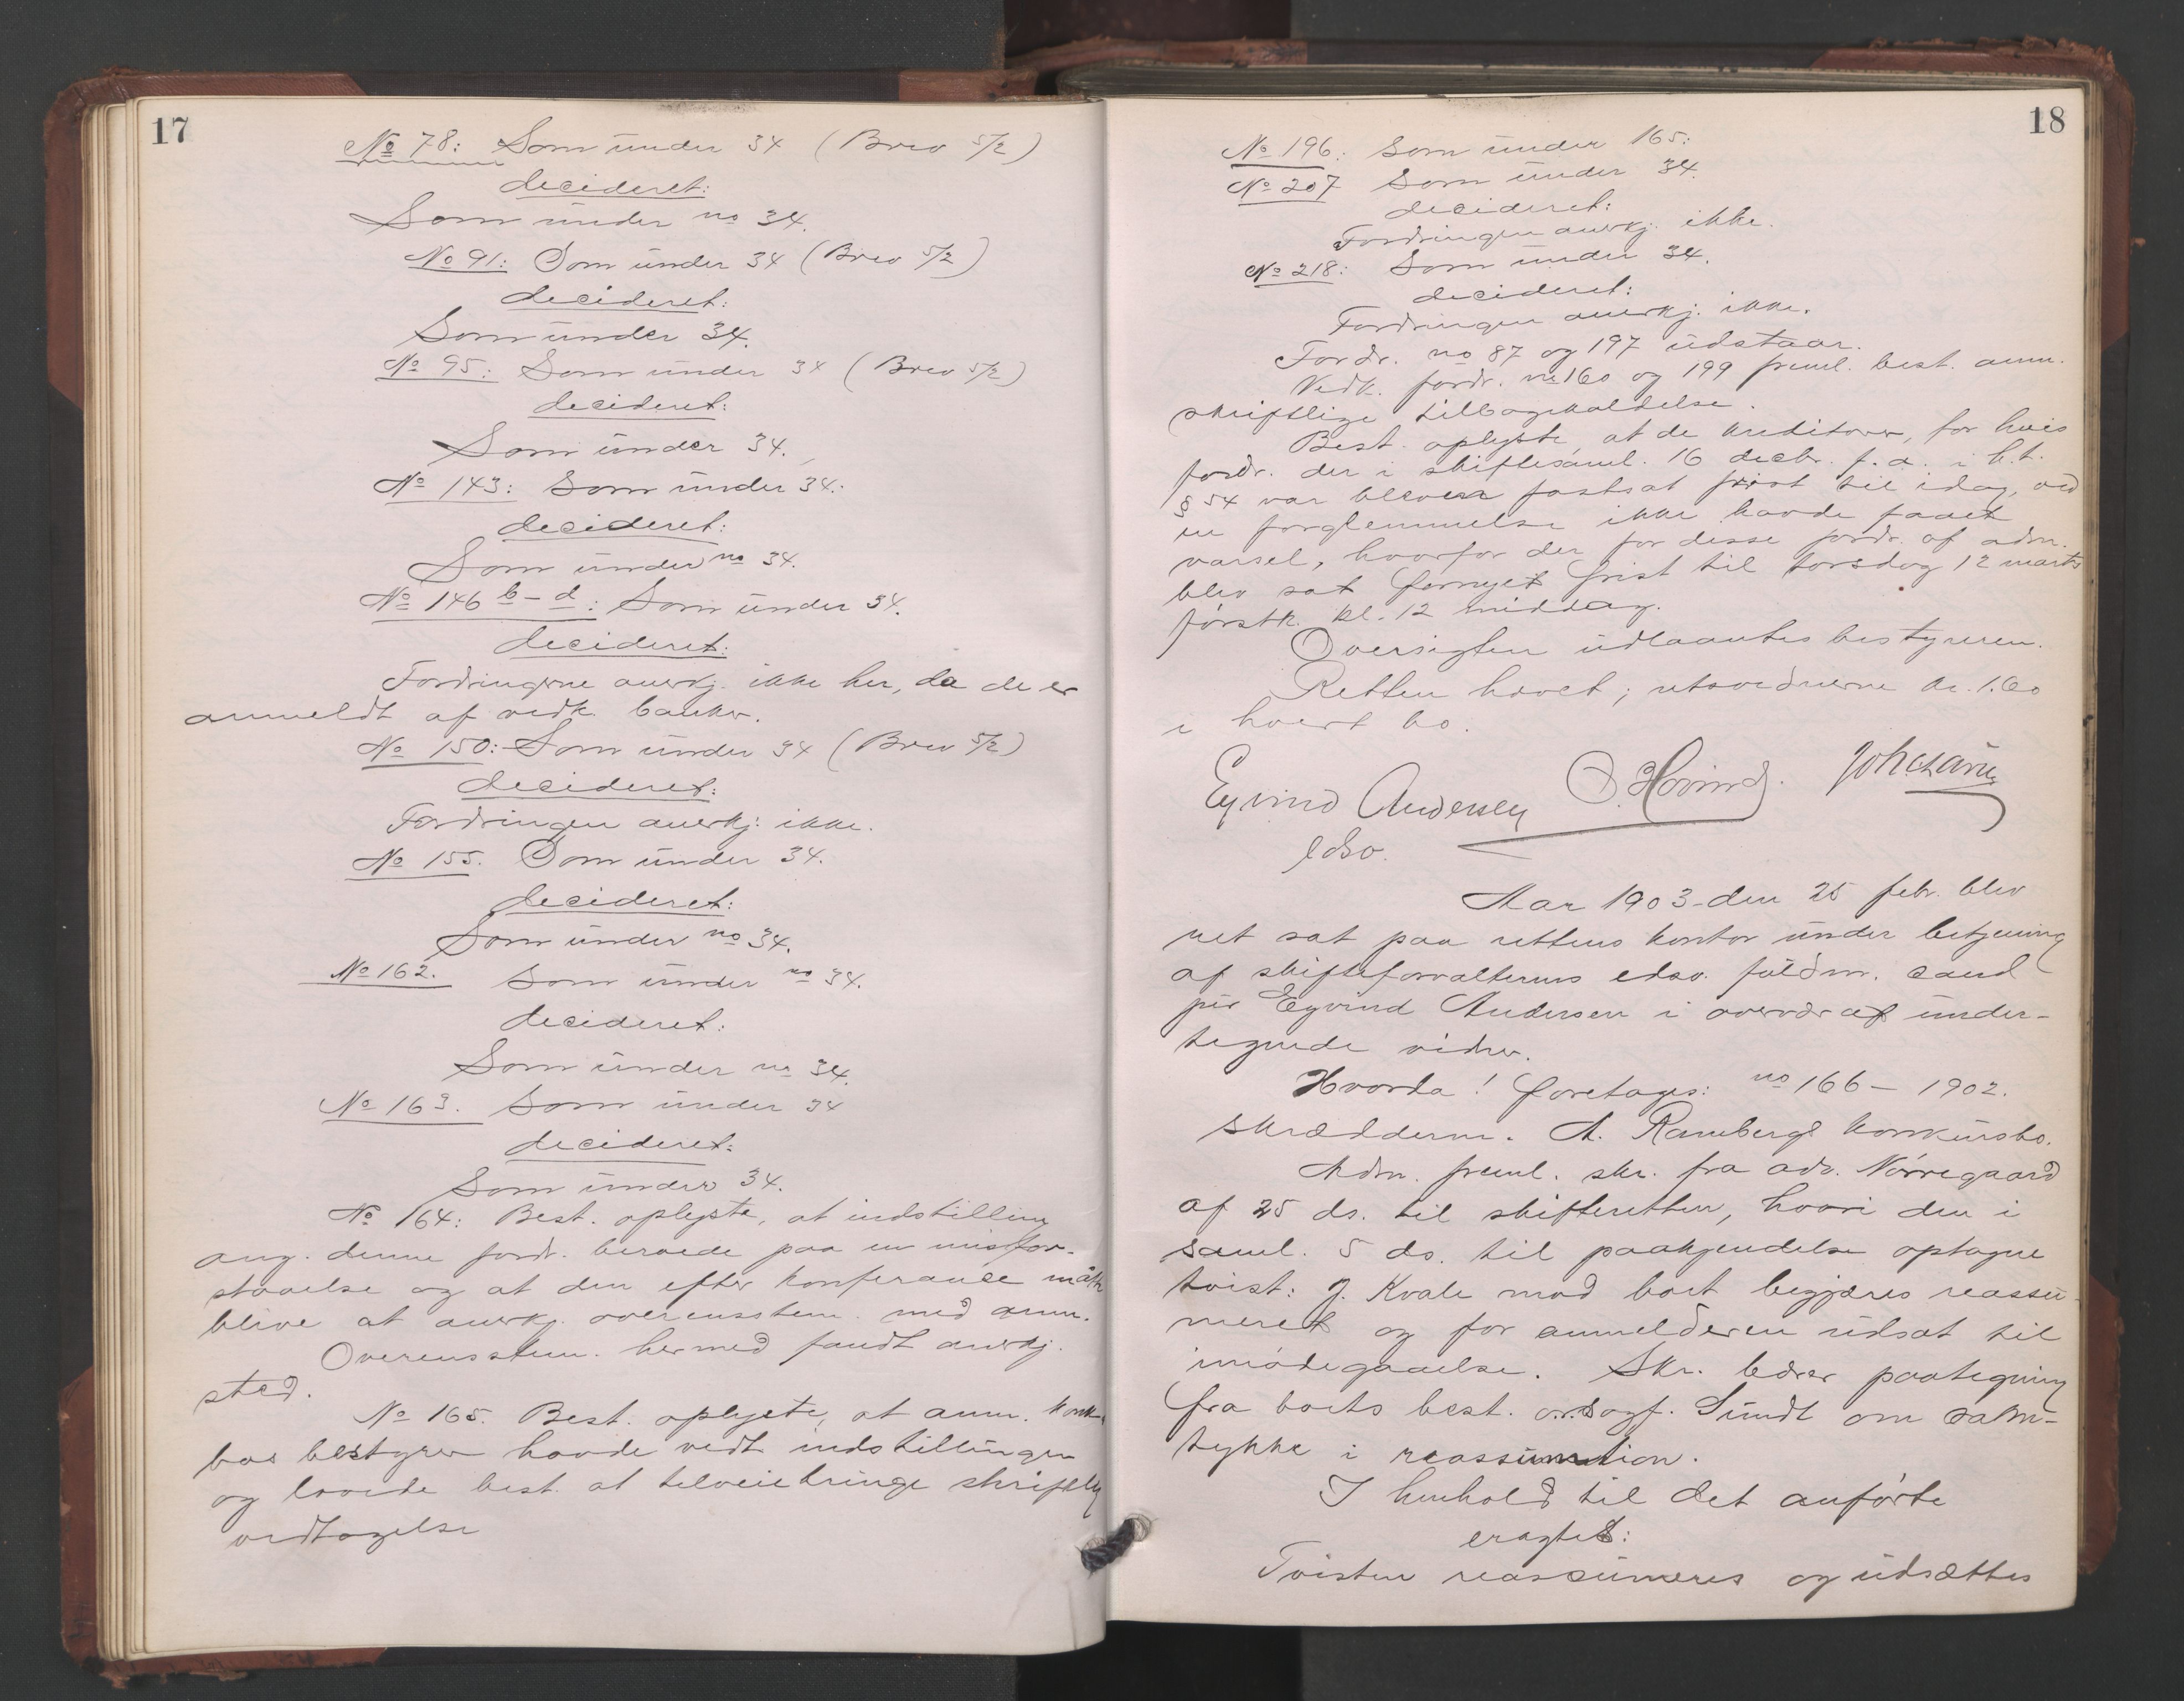 17
No 78: Som under 34 (Brev 5/2)
decideret:
Som under no 34.
No 91: Som under 34 (Brev 5/2)
decideret:
Som under 34.
No 95: Som under 34 (Brev 5/2)
decideret:
Som under 34.
No 143: Som under 34:
decideret:
Som under no 34.
No 146 b-d: Som under 34.
decideret:
Fordringerne anerkj. ikke her, da de er
anmeldt af vedk. banker.
No 150: Som under 34 (Brev 5/2)
decideret:
Fordringen anerkj. ikke.
No 155. Som under 34.
decideret:
Som under no 34.
No 162. Som under no 34.
decideret:
Som under no 34.
No 163. Som under 34
decideret:
Som under 34.
No 164: Best. oplyste, at indstilling
ang. denne fordr. beroede paa en misfor-
staaelse og at den efter konferance måtte
blive at anerkj. overensstem. med anm.
Overensstem. hermed fandt anerkj.
sted.
No 165. Best. oplyste, at anm. konk.
bos bestyrer havde vedt. indstillingen
og lovede best. at tilveiebringe skriftlig
vedtagelse
18
No 196: Som under 165:
No 207 Som under 34.
decideret:
Fordringen anerkj. ikke.
No 218: Som under 34.
decideret:
Fordringen anerkj. ikke.
Fordr. no 87 og 197 udstaar.
Vedk. fordr. no 160 og 199 freml. best. anm.
skriftlige tilbagekaldelse.
Best. oplyste, at de kreditorer, for hvis
fordr. der i skiftesaml. 16 decbr. f.a. i h.t.
§ 54 var bleven fastsat frist til idag, ved
en forglemmelse ikke havde faaet
varsel, hvorfor der for disse fordr. af adm.
blev sat fornyet frist til torsdag 12 marts
førstk. kl. 12 middag.
Oversigten udlaantes bestyreren.
Retten hævet; retsvidnerne kr. 1.60
i hvert bo.
Eyvind Andersen O. Hovind.
edsv.
Aar 1903 den 25 febr. blev
ret sat paa rettens kontor under betjening
af skifteforvalterens edsv. fuldm. cand
jur Eyvind Andersen i overvær af under-
tegnede vidner.
Hvorda! foretages: no 166 - 1902.
Skrædderm. A. Rambergs konkursbo.
Adm. freml. skr. fra adv. Nørregaard
af 25 ds. til skifteretten, hvori den i
saml. 5 ds. til paakjendelse optagne
tvist: J. Kvale mod boet begjæres reassu-
meret og for anmelderen udsat til
imødegaaelse. Skr. bærer paategning
fra boets best. o.r.sagf. Sundt om sam-
tykke i reassumtion.
I henhold til det anførte
eragtes:
Tvisten reassumeres og udsættes